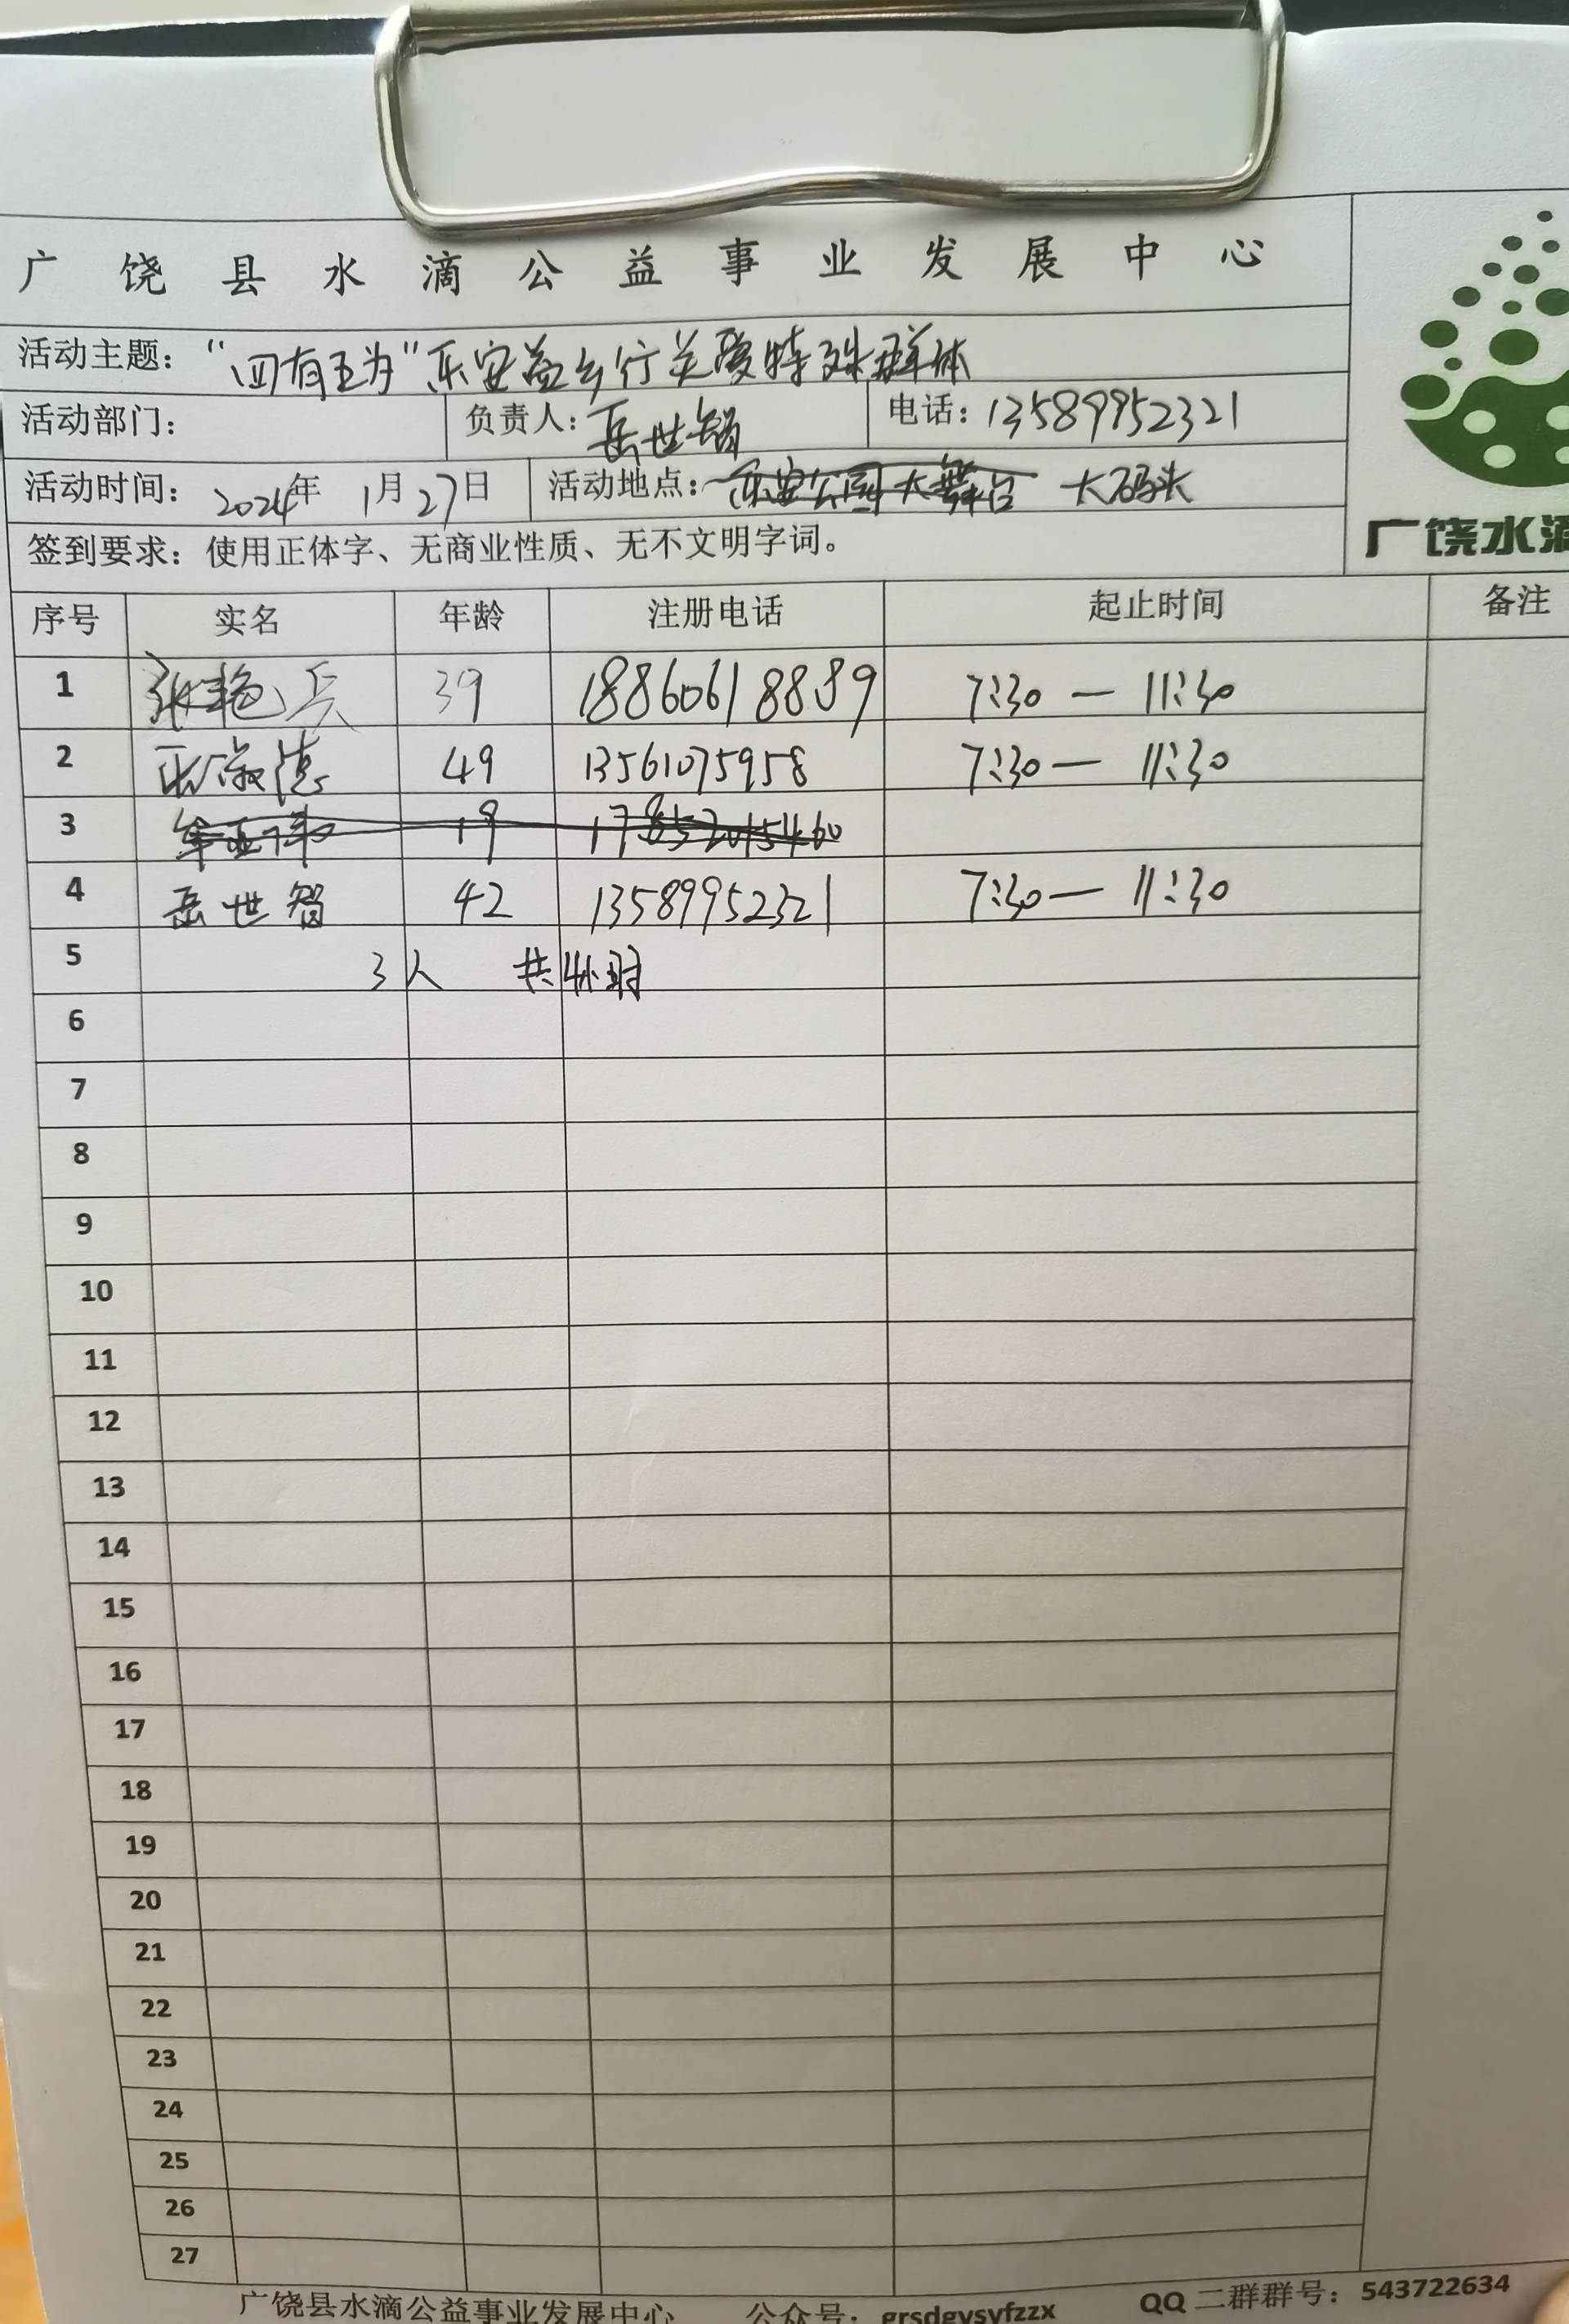 广饶县水滴公益事业发展中心
活动主题：“四有五为”乐安益乡行关爱特殊群体
活动部门： 负责人：岳世智 电话：13589952321
活动时间：2024年1月27日 活动地点：乐安公园大舞台 大码头
广饶水滴
签到要求：使用正体字、无商业性质、无不文明字词。
序号 实名 年龄 注册电话 起止时间 备注
1 张艳兵 39 18860618889 7:30 — 11:30
2 49 13561075958 7:30 — 11:30
3 19 17852015460
4 岳世智 42 13589952321 7:30 — 11:30
5 3人 共4小时
6
7
8
9
10
11
12
13
14
15
16
17
18
19
20
21
22
23
24
25
26
27
广饶县水滴公益事业发展中心 公众号：grsdgysyfzzx QQ二群群号：543722634